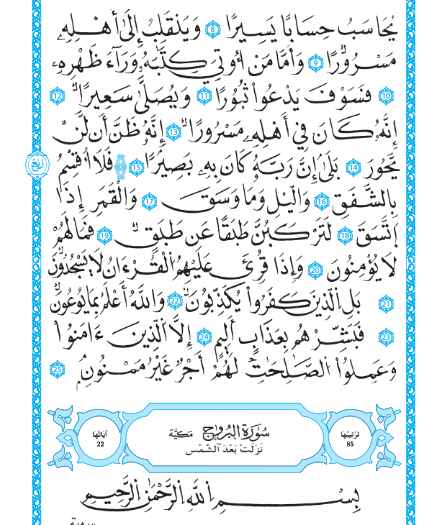 يُحَاسَبُ حِسَابًا يَسِيرًا ﴿8﴾ وَيَنقَلِبُ إِلَىٰ أَهْلِهِۦ
مَسْرُورًا ﴿9﴾ وَأَمَّا مَنْ أُوتِيَ كِتَٰبَهُۥ وَرَآءَ ظَهْرِهِۦ
﴿10﴾ فَسَوْفَ يَدْعُوا۟ ثُبُورًا ﴿11﴾ وَيَصْلَىٰ سَعِيرًا ﴿12﴾
إِنَّهُۥ كَانَ فِىٓ أَهْلِهِۦ مَسْرُورًا ﴿13﴾ إِنَّهُۥ ظَنَّ أَن لَّن
يَحُورَ ﴿14﴾ بَلَىٰٓ إِنَّ رَبَّهُۥ كَانَ بِهِۦ بَصِيرًا ﴿15﴾ فَلَآ أُقْسِمُ
بِٱلشَّفَقِ ﴿16﴾ وَٱلَّيْلِ وَمَا وَسَقَ ﴿17﴾ وَٱلْقَمَرِ إِذَا
ٱتَّسَقَ ﴿18﴾ لَتَرْكَبُنَّ طَبَقًا عَن طَبَقٍ ﴿19﴾ فَمَا لَهُمْ
لَا يُؤْمِنُونَ ﴿20﴾ وَإِذَا قُرِئَ عَلَيْهِمُ ٱلْقُرْءَانُ لَا يَسْجُدُونَ
﴿21﴾ بَلِ ٱلَّذِينَ كَفَرُوا۟ يُكَذِّبُونَ ﴿22﴾ وَٱللَّهُ أَعْلَمُ بِمَا يُوعُونَ
﴿23﴾ فَبَشِّرْهُم بِعَذَابٍ أَلِيمٍ ﴿24﴾ إِلَّا ٱلَّذِينَ ءَامَنُوا۟
وَعَمِلُوا۟ ٱلصَّٰلِحَٰتِ لَهُمْ أَجْرٌ غَيْرُ مَمْنُونٍۭ ﴿25﴾
ترتيبها 85
سُورَةُ البُرُوجِ مَكِّيَّة
آياتها 22
نَزَلَتْ بَعْدَ الشَّمْسِ
بِسْمِ ٱللَّهِ ٱلرَّحْمَٰنِ ٱلرَّحِيمِ